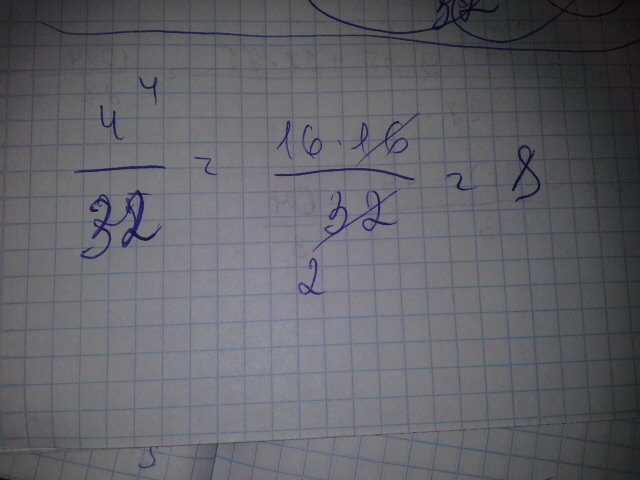 32
4^4/32 = 16·16/32 = 8
2
5